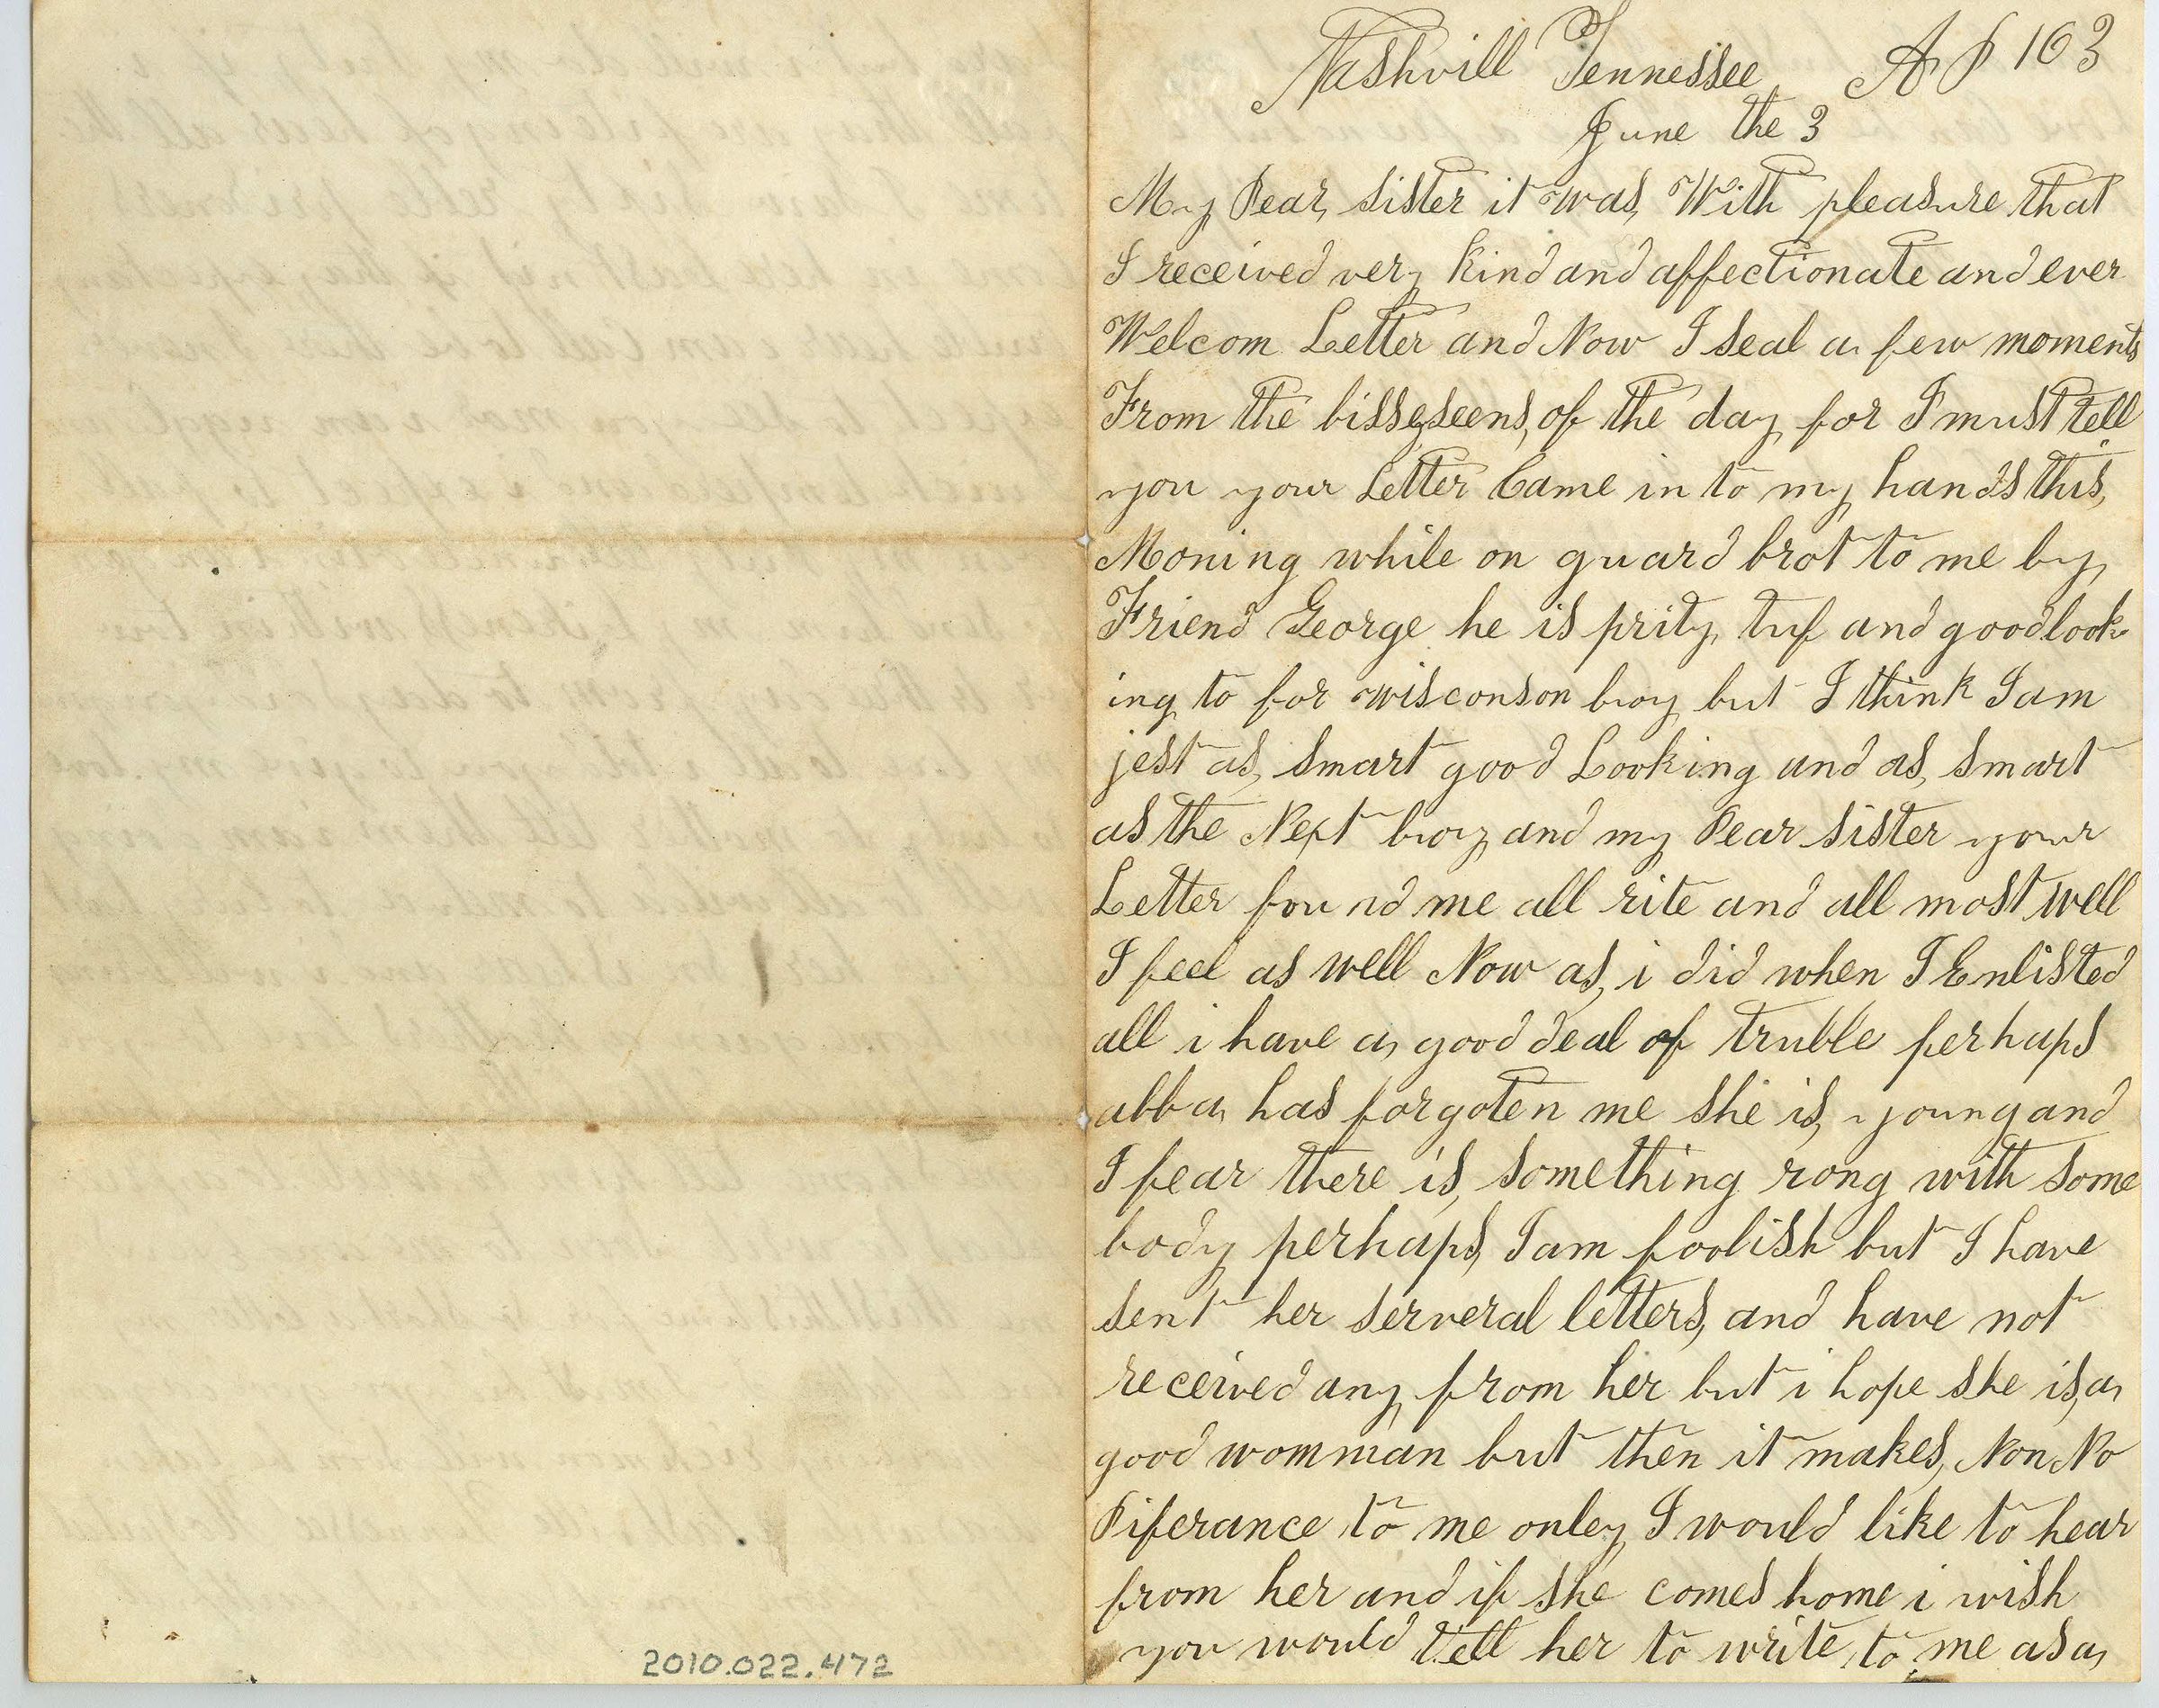 Nashvill Tennessee AD 163
June the 3
My Dear sister it was With pleasure that
I received very kind and affectionate and ever
Welcom Letter and Now I seal a few moments
From the bissyseens of the day for I must tell
you your Letter Came in to my hands this
Moning while on guard brot to me by
Friend George he is prity tuf and good look-
ing to for wisconson boy but I think I am
jest as smart good Looking and as smart
as the Next boy and my Dear sister your
Letter found me all rite and all most well
I feel as well Now as i did when I Enlisted
all i have a good deal of truble perhaps
abba has forgoten me she is young and
I fear there is something rong with some
body perhaps I am foolish but I have
sent her serveral letters and have not
received any from her but i hope she is a
good womman but then it makes Non No
Diferance to me onley I would like to hear
from her and if she comes home i wish
you would tell her to write to me as a
2010.022.472